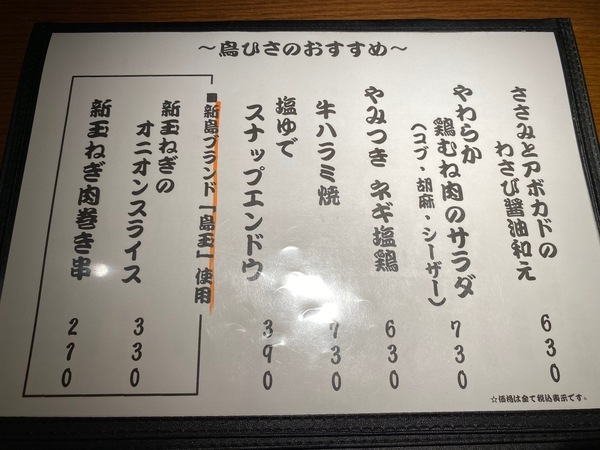 ～鳥ひさのおすすめ～
ささみとアボカドの
わさび醤油和え
630
やわらか
鶏むね肉のサラダ
（コブ・胡麻・シーザー）
730
やみつき ネギ塩鶏
630
牛ハラミ焼
730
塩ゆで
スナップエンドウ
390
■新島ブランド「島玉」使用
新玉ねぎの
オニオンスライス
330
新玉ねぎ肉巻き串
270
☆価格は全て税込表示です。